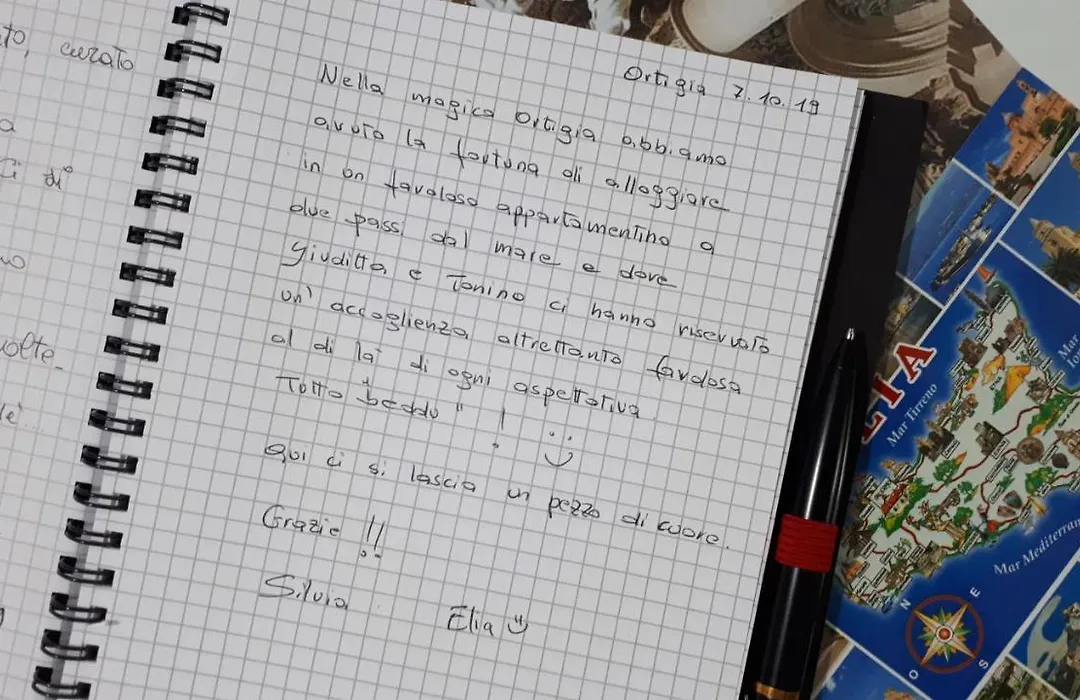 to, curato
a
Ci di
no
volte
Ortigia 7.10.19
Nella magica Ortigia abbiamo
avuto la fortuna di alloggiare
in un favoloso appartamentino a
due passi dal mare e dove
Giuditta e Tonino ci hanno riservato
un' accoglienza altrettanto favolosa
al di là di ogni aspettativa
Tutto "beddu" ! :)
Qui ci si lascia un pezzo di cuore.
Grazie !!
Silvia Elia
LIA
Mar Tirreno
Mar
Mar Mediterran
N E
O S